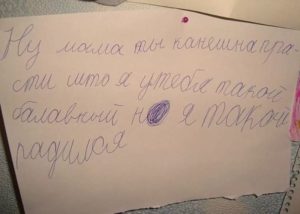 Ну мама ты канешна пра
сти што я у тебя такой
балавный но я такой
радился